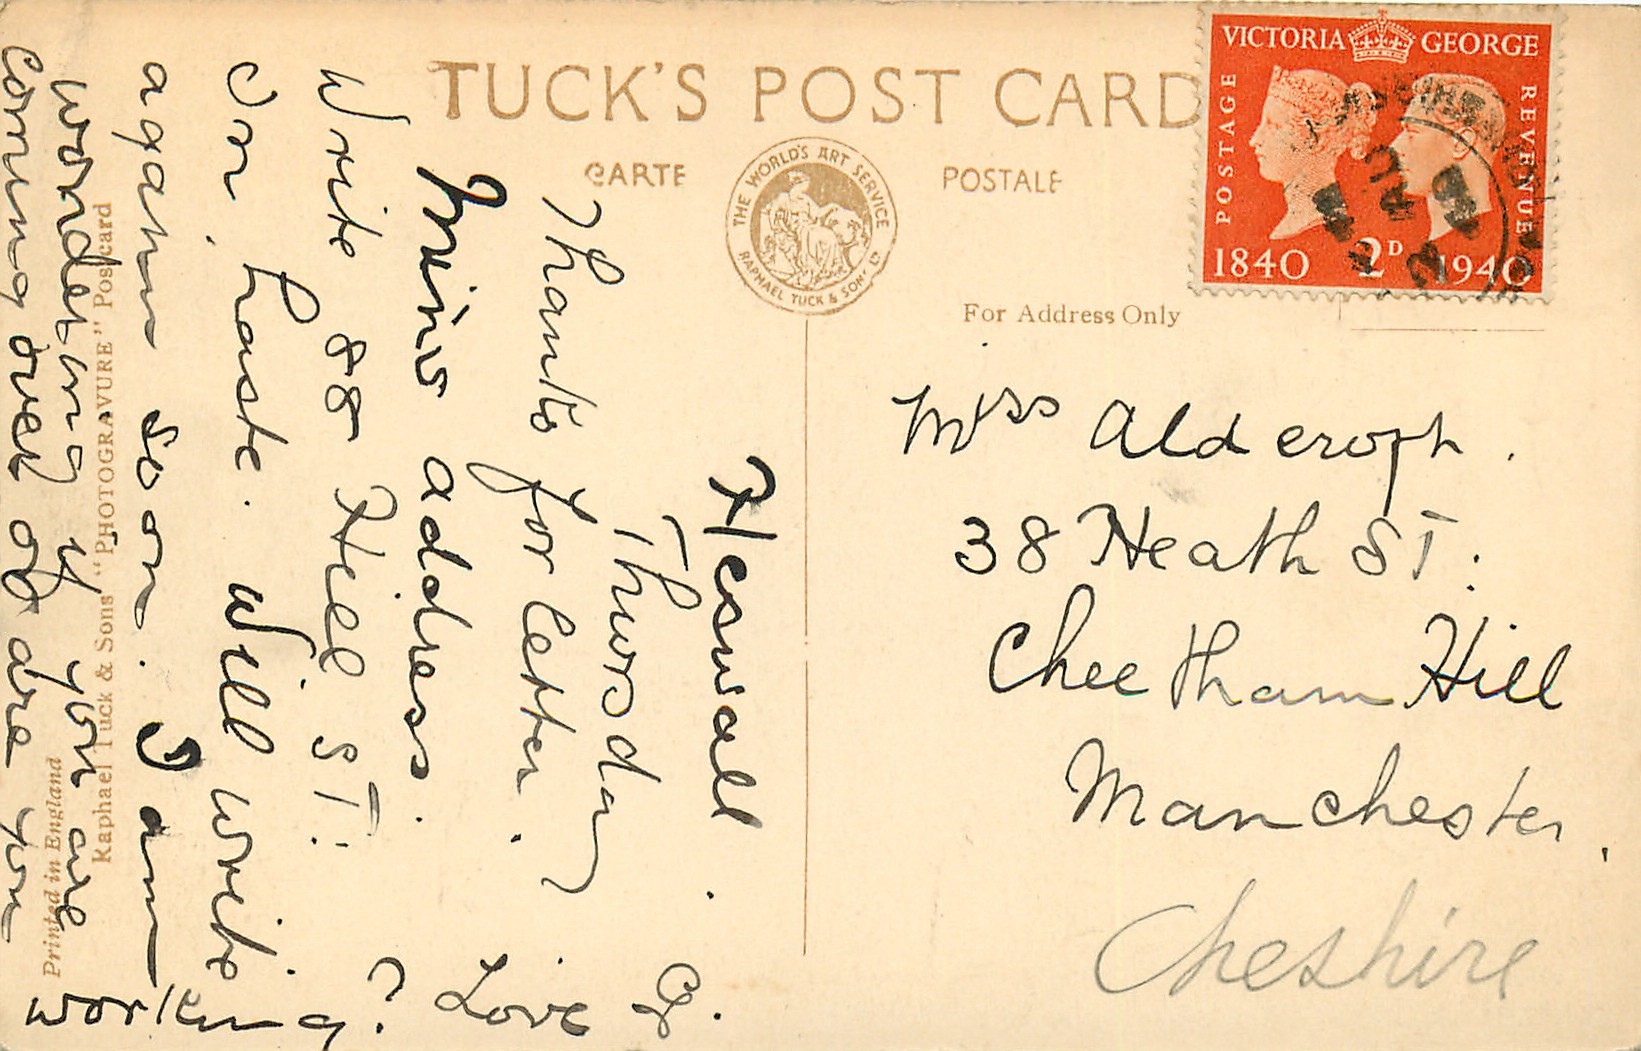 TUCK'S POST CARD
CARTE POSTALE
THE WORLD'S ART SERVICE
RAPHAEL TUCK & SONS LTD
For Address Only
VICTORIA GEORGE
POSTAGE
REVENUE
1840 2D 1940
Miss Aldcroft.
38 Heath ST:
Cheetham Hill
Manchester,
Cheshire
Heswall.
Thursday
Thanks for letter.
address.
Write 88 Hill ST:
In haste. Will write
again soon. I am
wondering if you are
coming over or are you
working?
Love
Raphael Tuck & Sons "PHOTOGRAVURE" Postcard
Printed in England